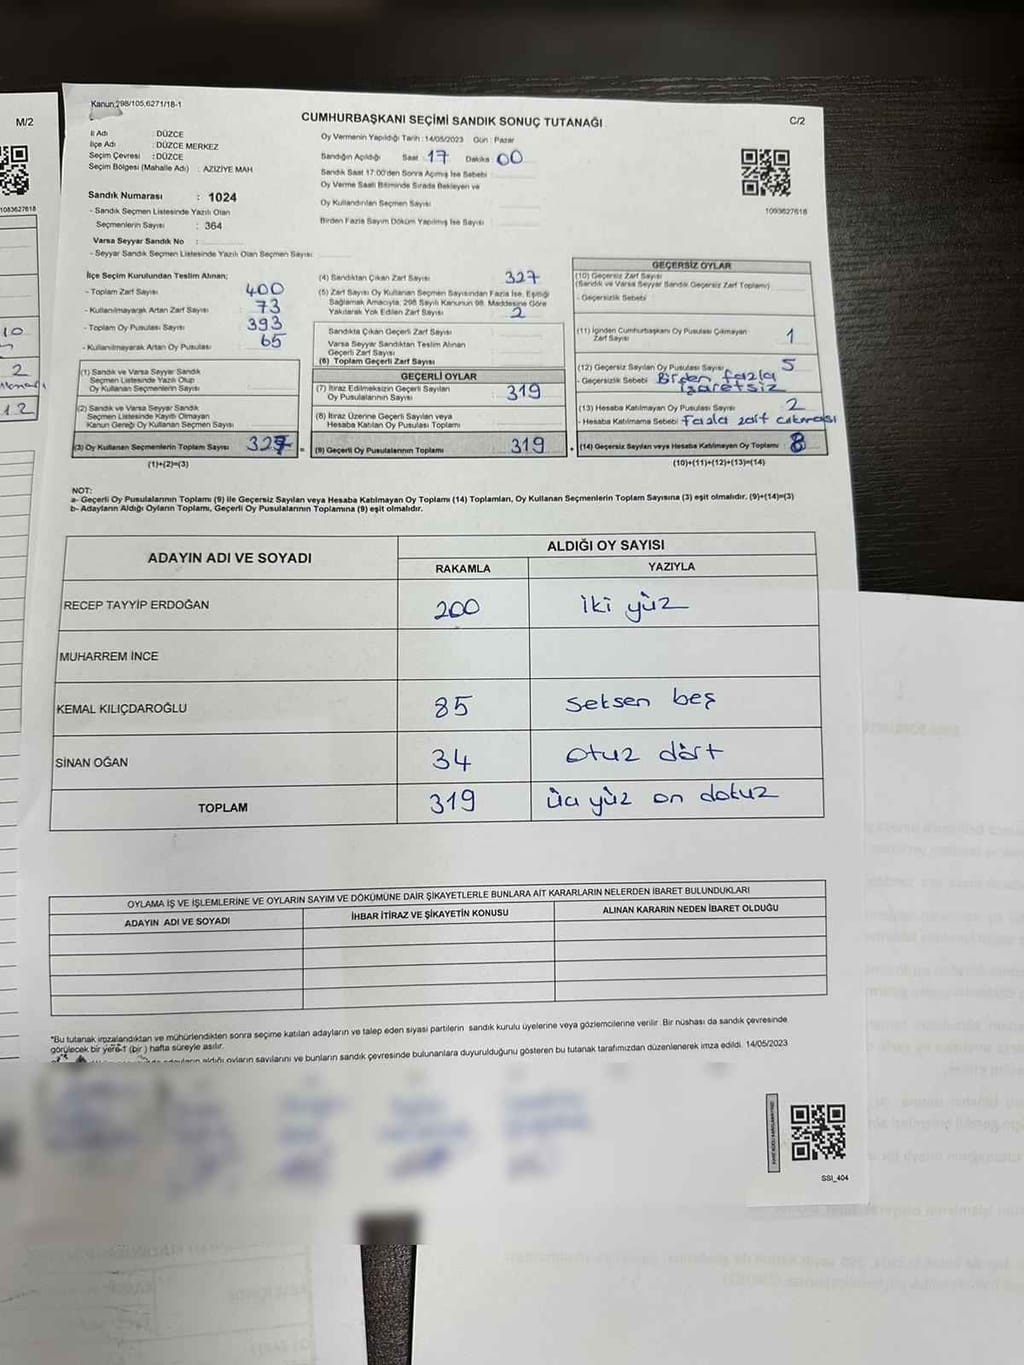 M/2
1083627618
2
12
Kanun:298/105,6271/18-1
CUMHURBAŞKANI SEÇİMİ SANDIK SONUÇ TUTANAĞI
C/2
İl Adı : DÜZCE
İlçe Adı : DÜZCE MERKEZ
Seçim Çevresi : DÜZCE
Seçim Bölgesi (Mahalle Adı) : AZIZIYE MAH
Sandık Numarası : 1024
- Sandık Seçmen Listesinde Yazılı Olan
Seçmenlerin Sayısı : 364
Varsa Seyyar Sandık No :
- Seyyar Sandık Seçmen Listesinde Yazılı Olan Seçmen Sayısı:
Oy Vermenin Yapıldığı Tarih : 14/05/2023 Gün : Pazar
Sandığın Açıldığı Saat 17 Dakika 00
Sandık Saat 17:00'den Sonra Açılmış İse Sebebi :
Oy Verme Saati Bitiminde Sırada Bekleyen ve
Oy Kullandırılan Seçmen Sayısı
Birden Fazla Sayım Döküm Yapılmış İse Sayısı
1093627618
İlçe Seçim Kurulundan Teslim Alınan;
- Toplam Zarf Sayısı 400
- Kullanılmayarak Artan Zarf Sayısı 73
- Toplam Oy Pusulası Sayısı 393
- Kullanılmayarak Artan Oy Pusulası 65
(1) Sandık ve Varsa Seyyar Sandık
Seçmen Listesinde Yazılı Olup
Oy Kullanan Seçmenlerin Sayısı
(2) Sandık ve Varsa Seyyar Sandık
Seçmen Listesinde Kayıtlı Olmayan
Kanun Gereği Oy Kullanan Seçmen Sayısı
(3) Oy Kullanan Seçmenlerin Toplam Sayısı 327
(1)+(2)=(3)
(4) Sandıktan Çıkan Zarf Sayısı 327
(5) Zarf Sayısı Oy Kullanan Seçmen Sayısından Fazla İse, Eşitliği
Sağlamak Amacıyla, 298 Sayılı Kanunun 98. Maddesine Göre
Yakılarak Yok Edilen Zarf Sayısı 2
Sandıkta Çıkan Geçerli Zarf Sayısı
Varsa Seyyar Sandıktan Teslim Alınan
Geçerli Zarf Sayısı
(6) Toplam Geçerli Zarf Sayısı
GEÇERLİ OYLAR
(7) İtiraz Edilmeksizin Geçerli Sayılan
Oy Pusulalarının Sayısı 319
(8) İtiraz Üzerine Geçerli Sayılan veya
Hesaba Katılan Oy Pusulası Toplamı
= (9) Geçerli Oy Pusulalarının Toplamı 319
GEÇERSİZ OYLAR
(10) Geçersiz Zarf Sayısı
(Sandık ve Varsa Seyyar Sandık Geçersiz Zarf Toplamı)
- Geçersizlik Sebebi
(11) İçinden Cumhurbaşkanı Oy Pusulası Çıkmayan
Zarf Sayısı 1
(12) Geçersiz Sayılan Oy Pusulası Sayısı 5
- Geçersizlik Sebebi Birden fazla
İşaretsiz
(13) Hesaba Katılmayan Oy Pusulası Sayısı 2
- Hesaba Katılmama Sebebi Fazla zarf çıkması
+ (14) Geçersiz Sayılan veya Hesaba Katılmayan Oy Toplamı 8
(10)+(11)+(12)+(13)=(14)
NOT:
a- Geçerli Oy Pusulalarının Toplamı (9) ile Geçersiz Sayılan veya Hesaba Katılmayan Oy Toplamı (14) Toplamları, Oy Kullanan Seçmenlerin Toplam Sayısına (3) eşit olmalıdır. (9)+(14)=(3)
b- Adayların Aldığı Oyların Toplamı, Geçerli Oy Pusulalarının Toplamına (9) eşit olmalıdır.
ADAYIN ADI VE SOYADI
ALDIĞI OY SAYISI
RAKAMLA YAZIYLA
RECEP TAYYİP ERDOĞAN 200 iki yüz
MUHARREM İNCE
KEMAL KILIÇDAROĞLU 85 seksen beş
SİNAN OĞAN 34 otuz dört
TOPLAM 319 üç yüz on dokuz
OYLAMA İŞ VE İŞLEMLERİNE VE OYLARIN SAYIM VE DÖKÜMÜNE DAİR ŞİKAYETLERLE BUNLARA AİT KARARLARIN NELERDEN İBARET BULUNDUKLARI
ADAYIN ADI VE SOYADI İHBAR İTİRAZ VE ŞİKAYETİN KONUSU ALINAN KARARIN NEDEN İBARET OLDUĞU
*Bu tutanak imzalandıktan ve mühürlendikten sonra seçime katılan adayların ve talep eden siyasi partilerin sandık kurulu üyelerine veya gözlemcilerine verilir. Bir nüshası da sandık çevresinde
görülecek bir yere 1 (bir ) hafta süreyle asılır.
adayların aldığı oyların sayılarını ve bunların sandık çevresinde bulunanlara duyurulduğunu gösteren bu tutanak tarafımızdan düzenlenerek imza edildi. 14/05/2023
SSI_404